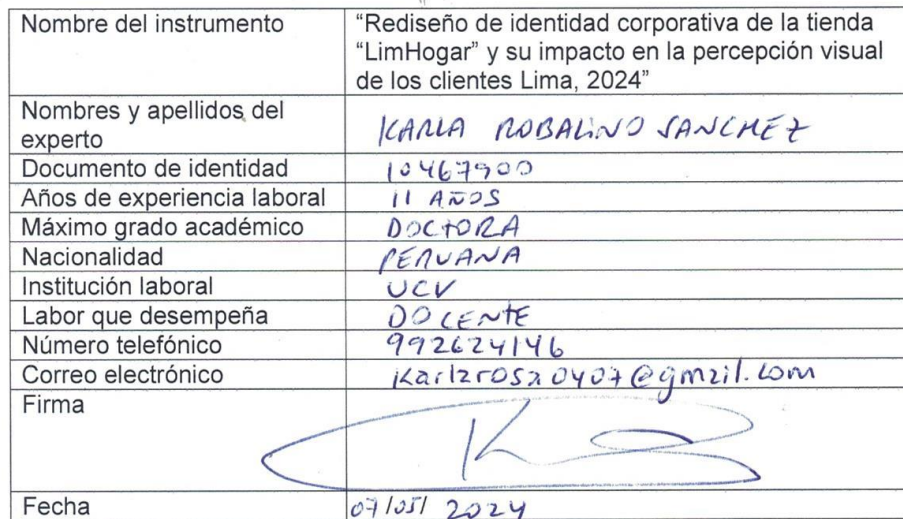 Nombre del instrumento
“Rediseño de identidad corporativa de la tienda
“LimHogar” y su impacto en la percepción visual
de los clientes Lima, 2024”
Nombres y apellidos del
experto
KARLA ROBALINO SANCHEZ
Documento de identidad
10467900
Años de experiencia laboral
11 AÑOS
Máximo grado académico
DOCTORA
Nacionalidad
PERUANA
Institución laboral
UCV
Labor que desempeña
DOCENTE
Número telefónico
992624146
Correo electrónico
Karlarosa0407@gmail.com
Firma
Fecha
07/05/ 2024